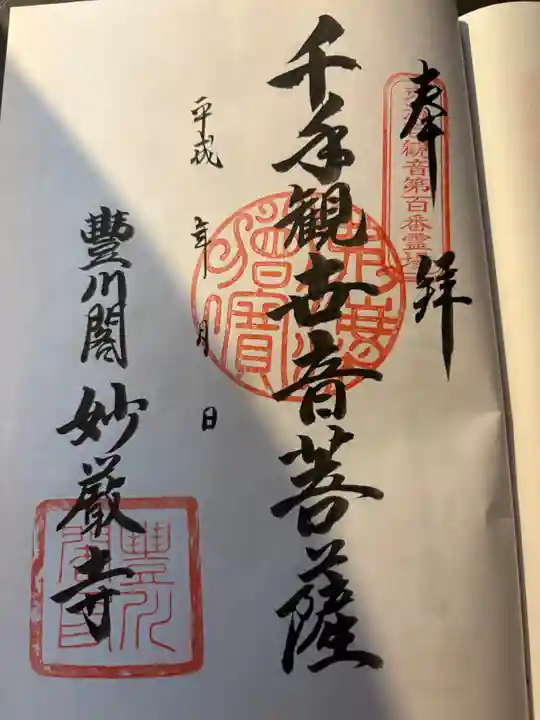 奉拝
観音第百番霊場
千手観世音菩薩
平成 年 月 日
豐川閣 妙厳寺